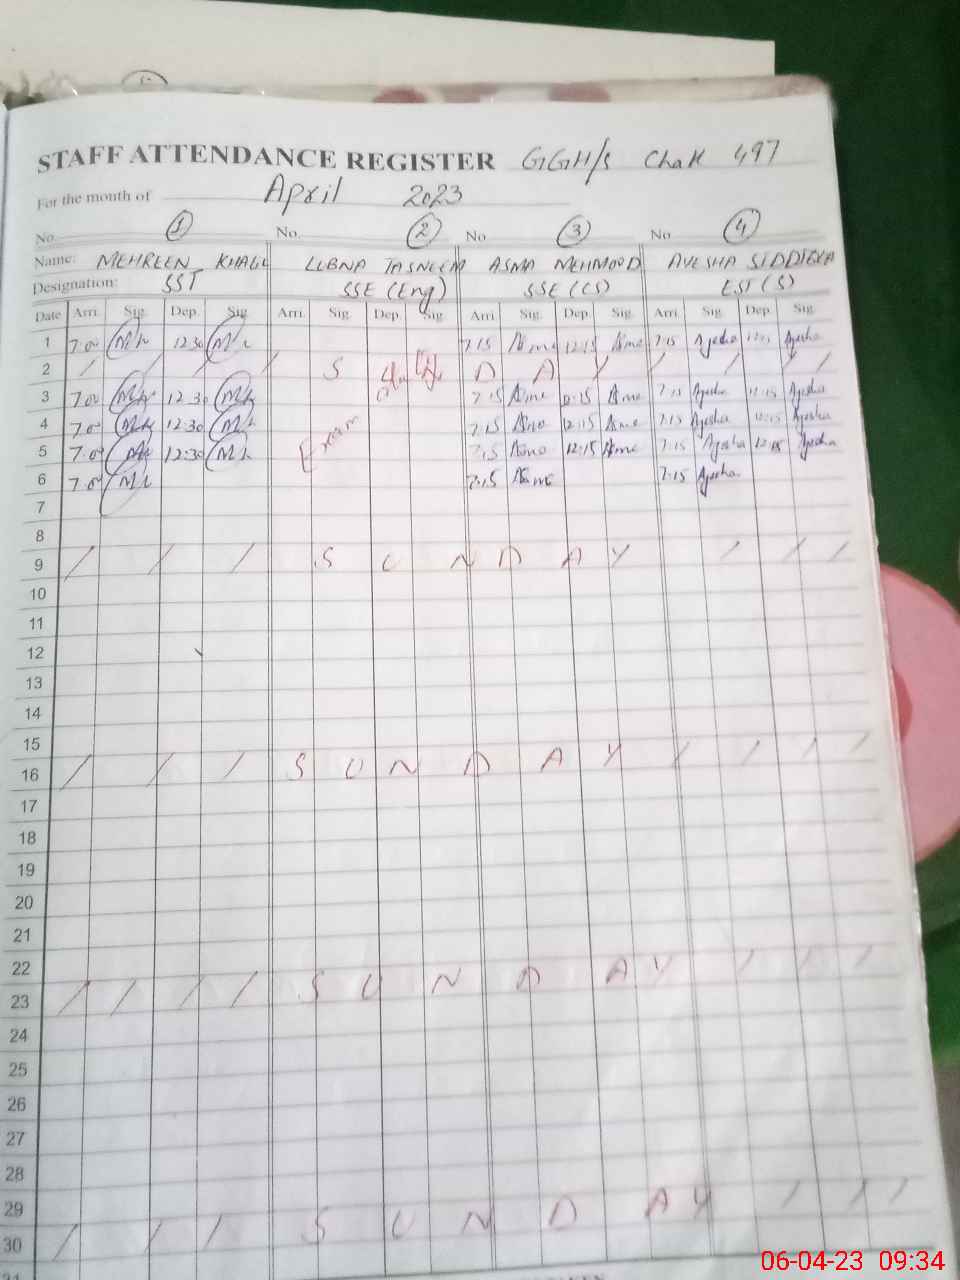 STAFF ATTENDANCE REGISTER GGH/S Chak 497
For the month of April 2023
No. 1 No. 2 No 3 No 4
Name: MEHREEN KHALIL LUBNA TASNEEM ASMA MEHMOOD AYESHA SIDDIQUA
Designation: SST SSE (Eng) SSE (CS) EST (S)
Date Arri. Sig. Dep. Sig. Arri. Sig. Dep. Sig. Arri. Sig. Dep. Sig. Arri. Sig. Dep. Sig.
1 7.00 12.30 7.15 Asma 12:15 Asma 7:15 Ayesha Ayesha
2 / / / S D A Y / / / /
3 7.00 12.30 7.15 Asma 12:15 Asma 7:15 Ayesha 12:15 Ayesha
4 7.00 12.30 7.15 Asma 12:15 Asma 7:15 Ayesha 12:15 Ayesha
5 7.00 12:30 Exam 7.15 Asma 12:15 Asma 7:15 Ayesha 12:15 Ayesha
6 7.00 7.15 Asma 7.15 Ayesha
7
8
9 / / / S U N D A Y / / /
10
11
12
13
14
15
16 / / / S U N D A Y / / / /
17
18
19
20
21
22
23 / / / / S U N D A Y / / /
24
25
26
27
28
29
30 / / / S U N D A Y / / /
06-04-23 09:34